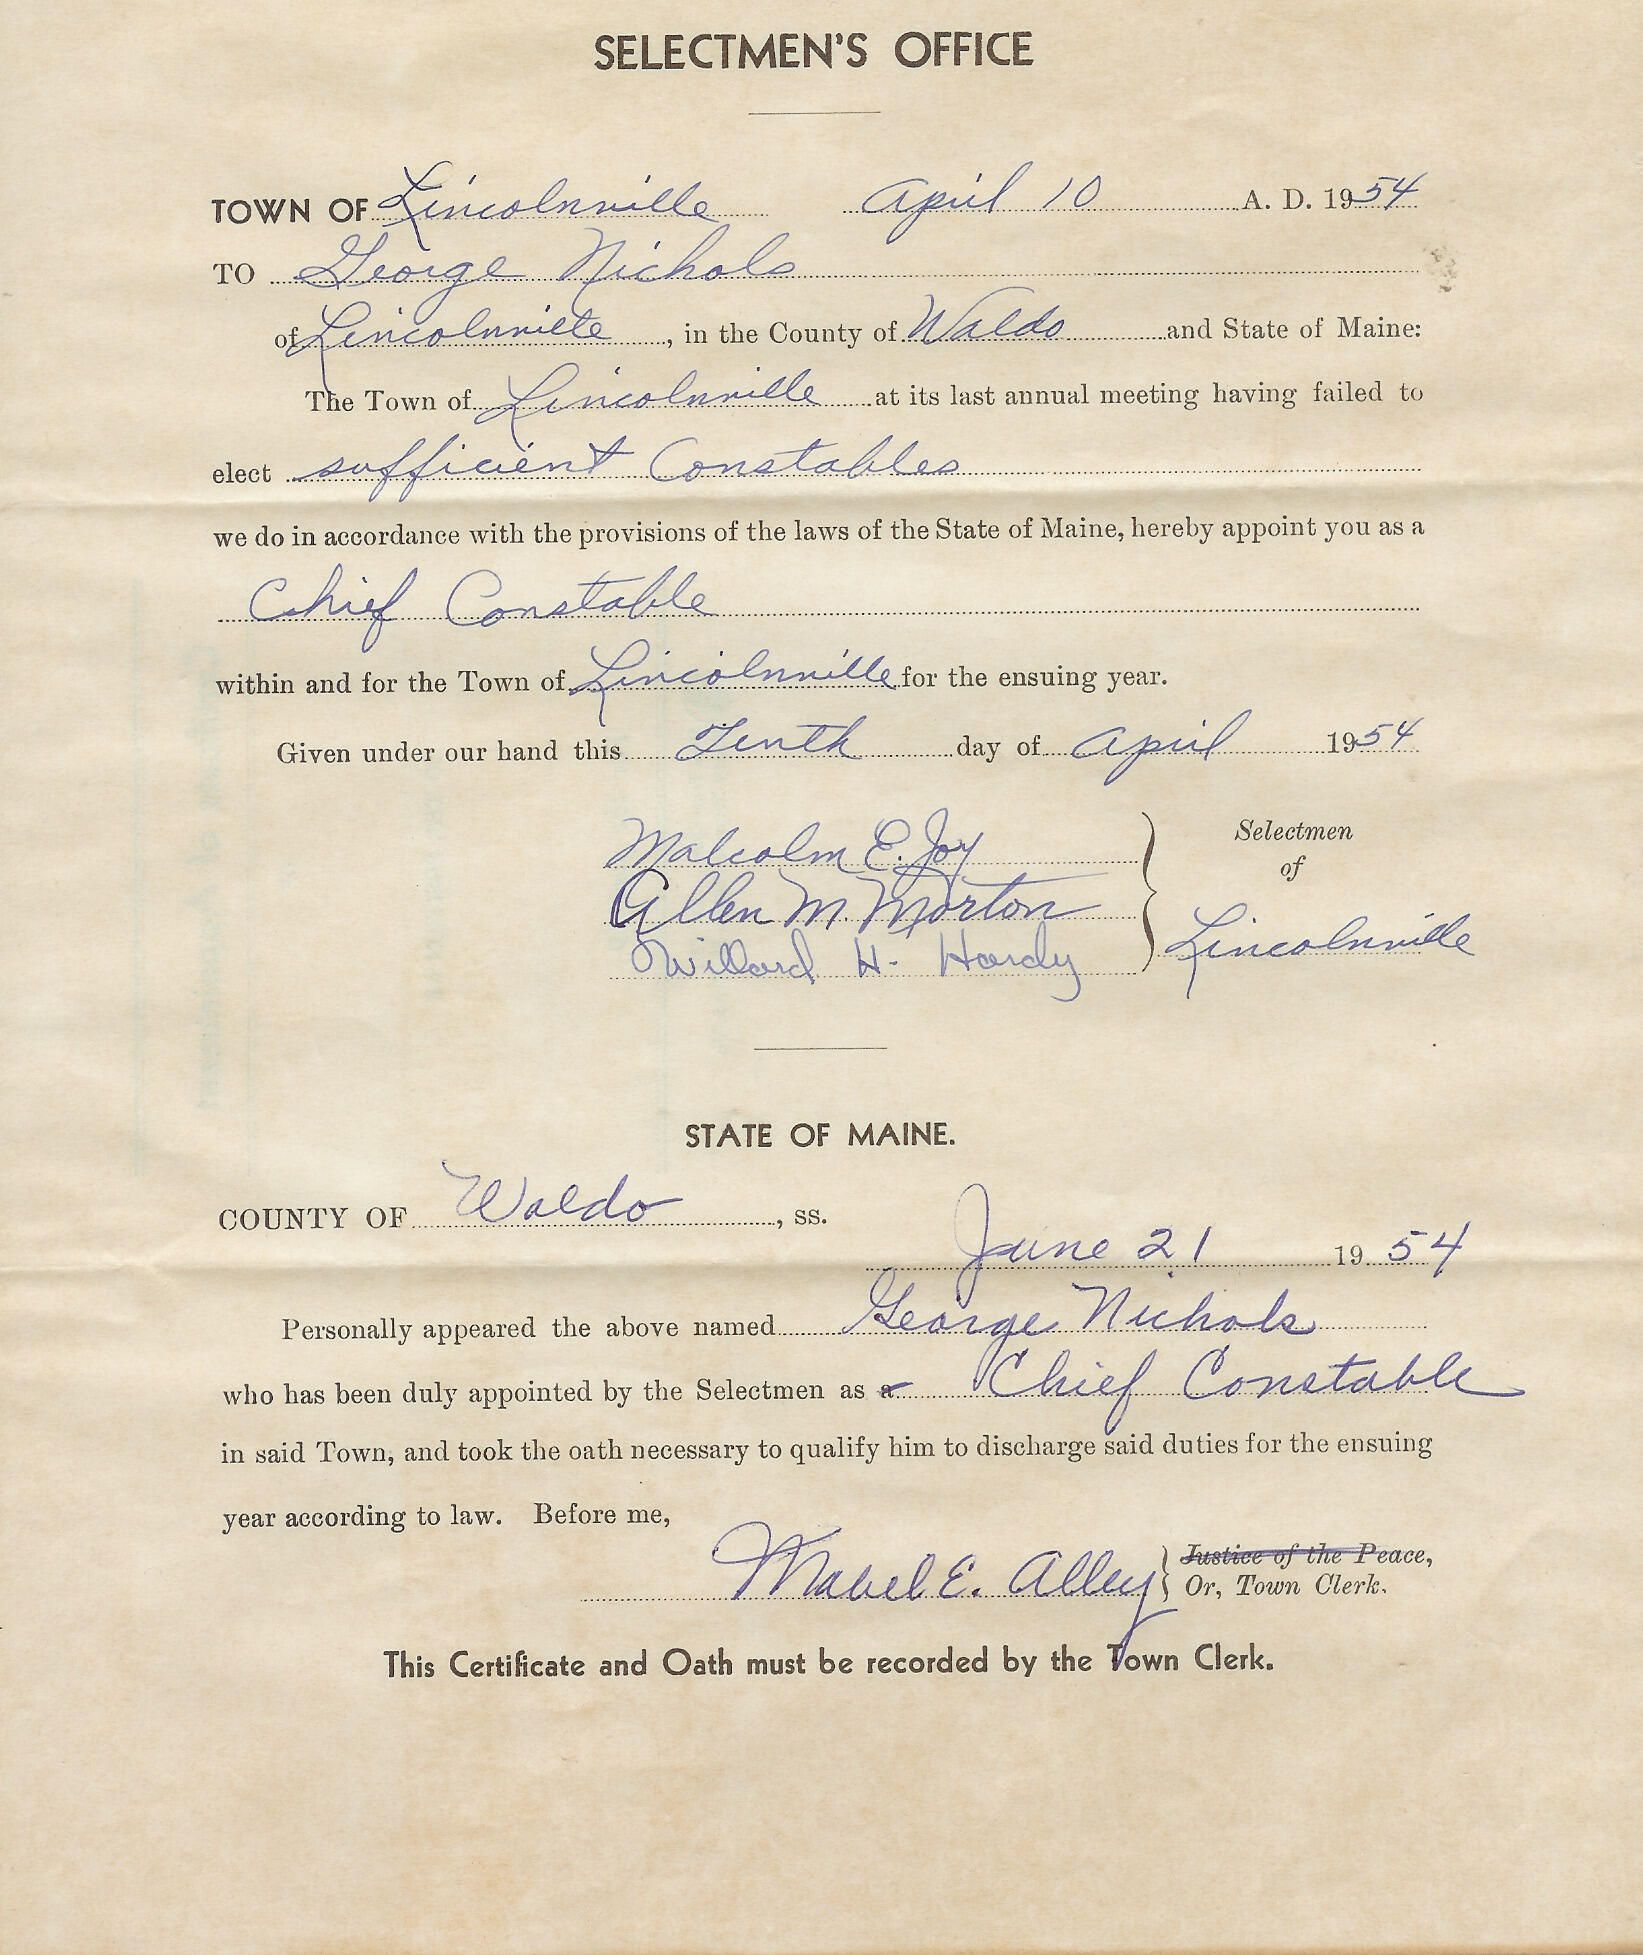 SELECTMEN'S OFFICE
TOWN OF Lincolnville April 10 A. D. 1954
TO George Nichols
of Lincolnville, in the County of Waldo and State of Maine:
The Town of Lincolnville at its last annual meeting having failed to
elect sufficient Constables
we do in accordance with the provisions of the laws of the State of Maine, hereby appoint you as a
Chief Constable
within and for the Town of Lincolnville for the ensuing year.
Given under our hand this Tenth day of April 1954
Malcolm E. Joy
Allen M. Morton
Willard H. Hardy
Selectmen
of
Lincolnville
STATE OF MAINE.
COUNTY OF Waldo, ss.
June 21 1954
Personally appeared the above named George Nichols
who has been duly appointed by the Selectmen as a Chief Constable
in said Town, and took the oath necessary to qualify him to discharge said duties for the ensuing
year according to law. Before me,
Mabel E. Alley
Justice of the Peace,
Or, Town Clerk.
This Certificate and Oath must be recorded by the Town Clerk.